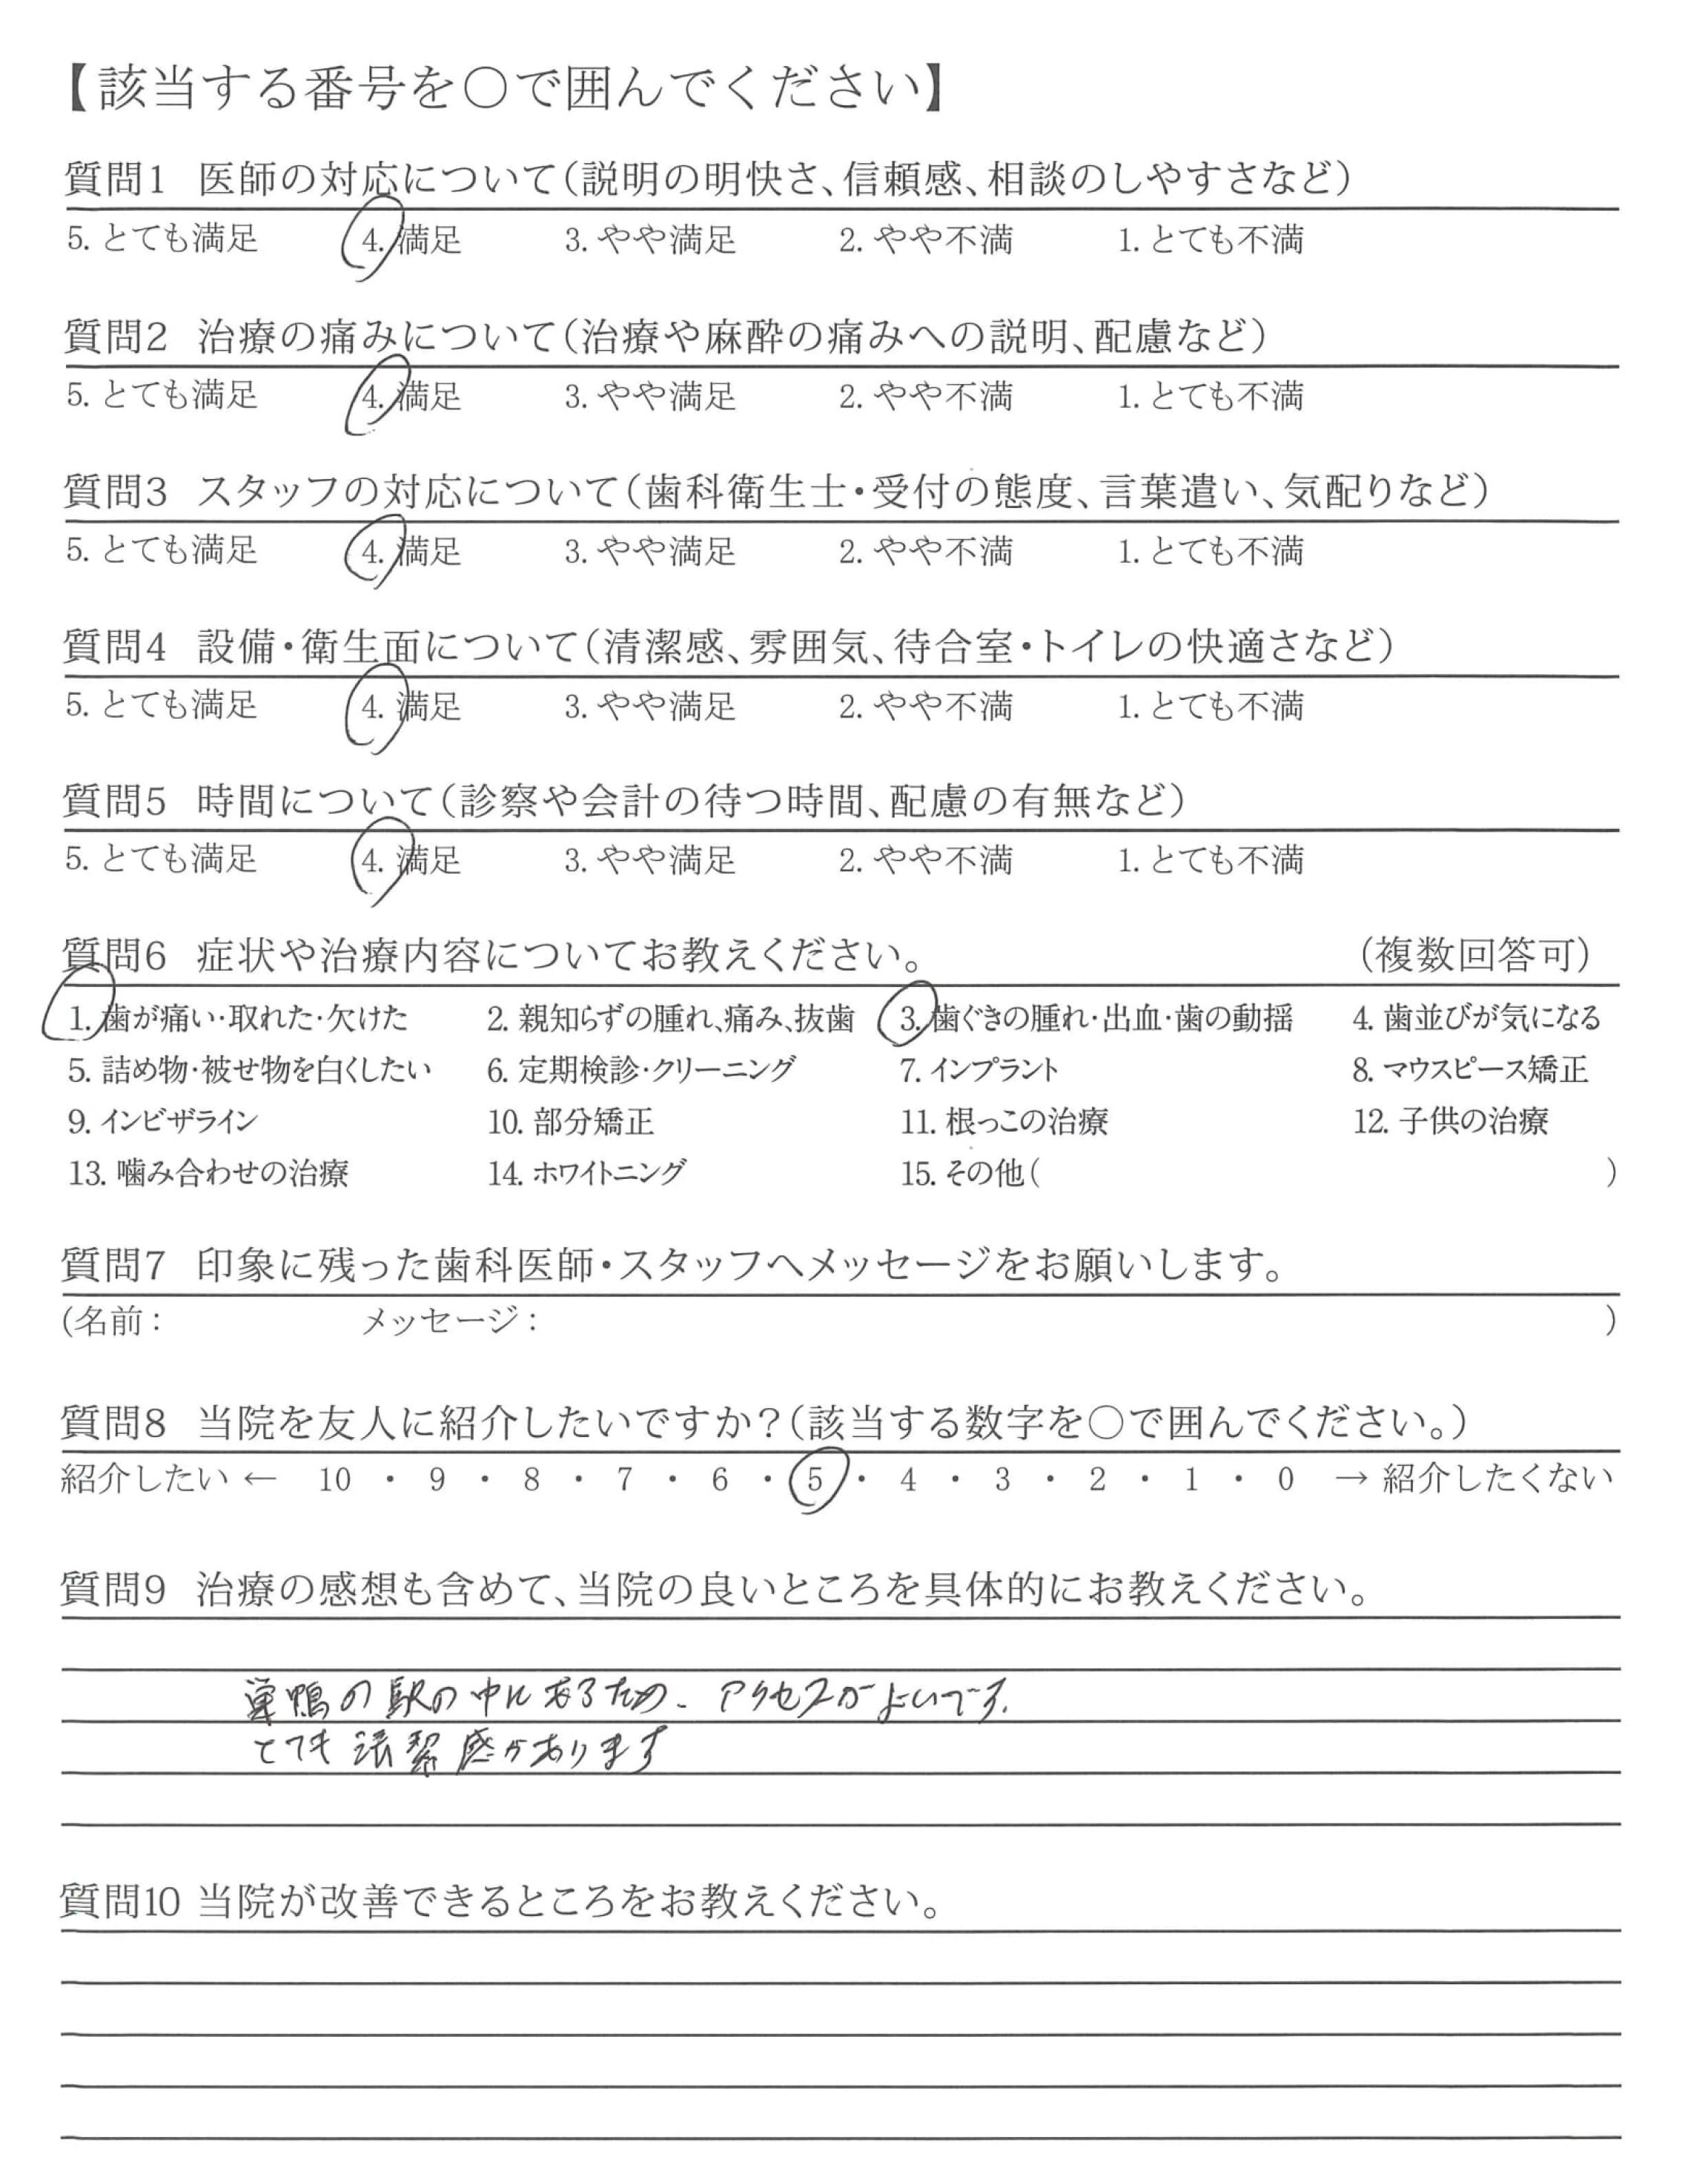 【該当する番号を〇で囲んでください】
質問1 医師の対応について(説明の明快さ、信頼感、相談のしやすさなど)
5. とても満足 4. 満足 3. やや満足 2. やや不満 1. とても不満
質問2 治療の痛みについて(治療や麻酔の痛みへの説明、配慮など)
5. とても満足 4. 満足 3. やや満足 2. やや不満 1. とても不満
質問3 スタッフの対応について(歯科衛生士・受付の態度、言葉遣い、気配りなど)
5. とても満足 4. 満足 3. やや満足 2. やや不満 1. とても不満
質問4 設備・衛生面について(清潔感、雰囲気、待合室・トイレの快適さなど)
5. とても満足 4. 満足 3. やや満足 2. やや不満 1. とても不満
質問5 時間について(診察や会計の待つ時間、配慮の有無など)
5. とても満足 4. 満足 3. やや満足 2. やや不満 1. とても不満
質問6 症状や治療内容についてお教えください。 (複数回答可)
1. 歯が痛い・取れた・欠けた 2. 親知らずの腫れ、痛み、抜歯 3. 歯ぐきの腫れ・出血・歯の動揺 4. 歯並びが気になる
5. 詰め物・被せ物を白くしたい 6. 定期検診・クリーニング 7. インプラント 8. マウスピース矯正
9. インビザライン 10. 部分矯正 11. 根っこの治療 12. 子供の治療
13. 噛み合わせの治療 14. ホワイトニング 15. その他( )
質問7 印象に残った歯科医師・スタッフへメッセージをお願いします。
(名前: メッセージ: )
質問8 当院を友人に紹介したいですか?(該当する数字を〇で囲んでください。)
紹介したい ← 10 ・ 9 ・ 8 ・ 7 ・ 6 ・ 5 ・ 4 ・ 3 ・ 2 ・ 1 ・ 0 → 紹介したくない
質問9 治療の感想も含めて、当院の良いところを具体的にお教えください。
巣鴨の駅の中にあるため、アクセスがよいです。
とても清潔感があります
質問10 当院が改善できるところをお教えください。